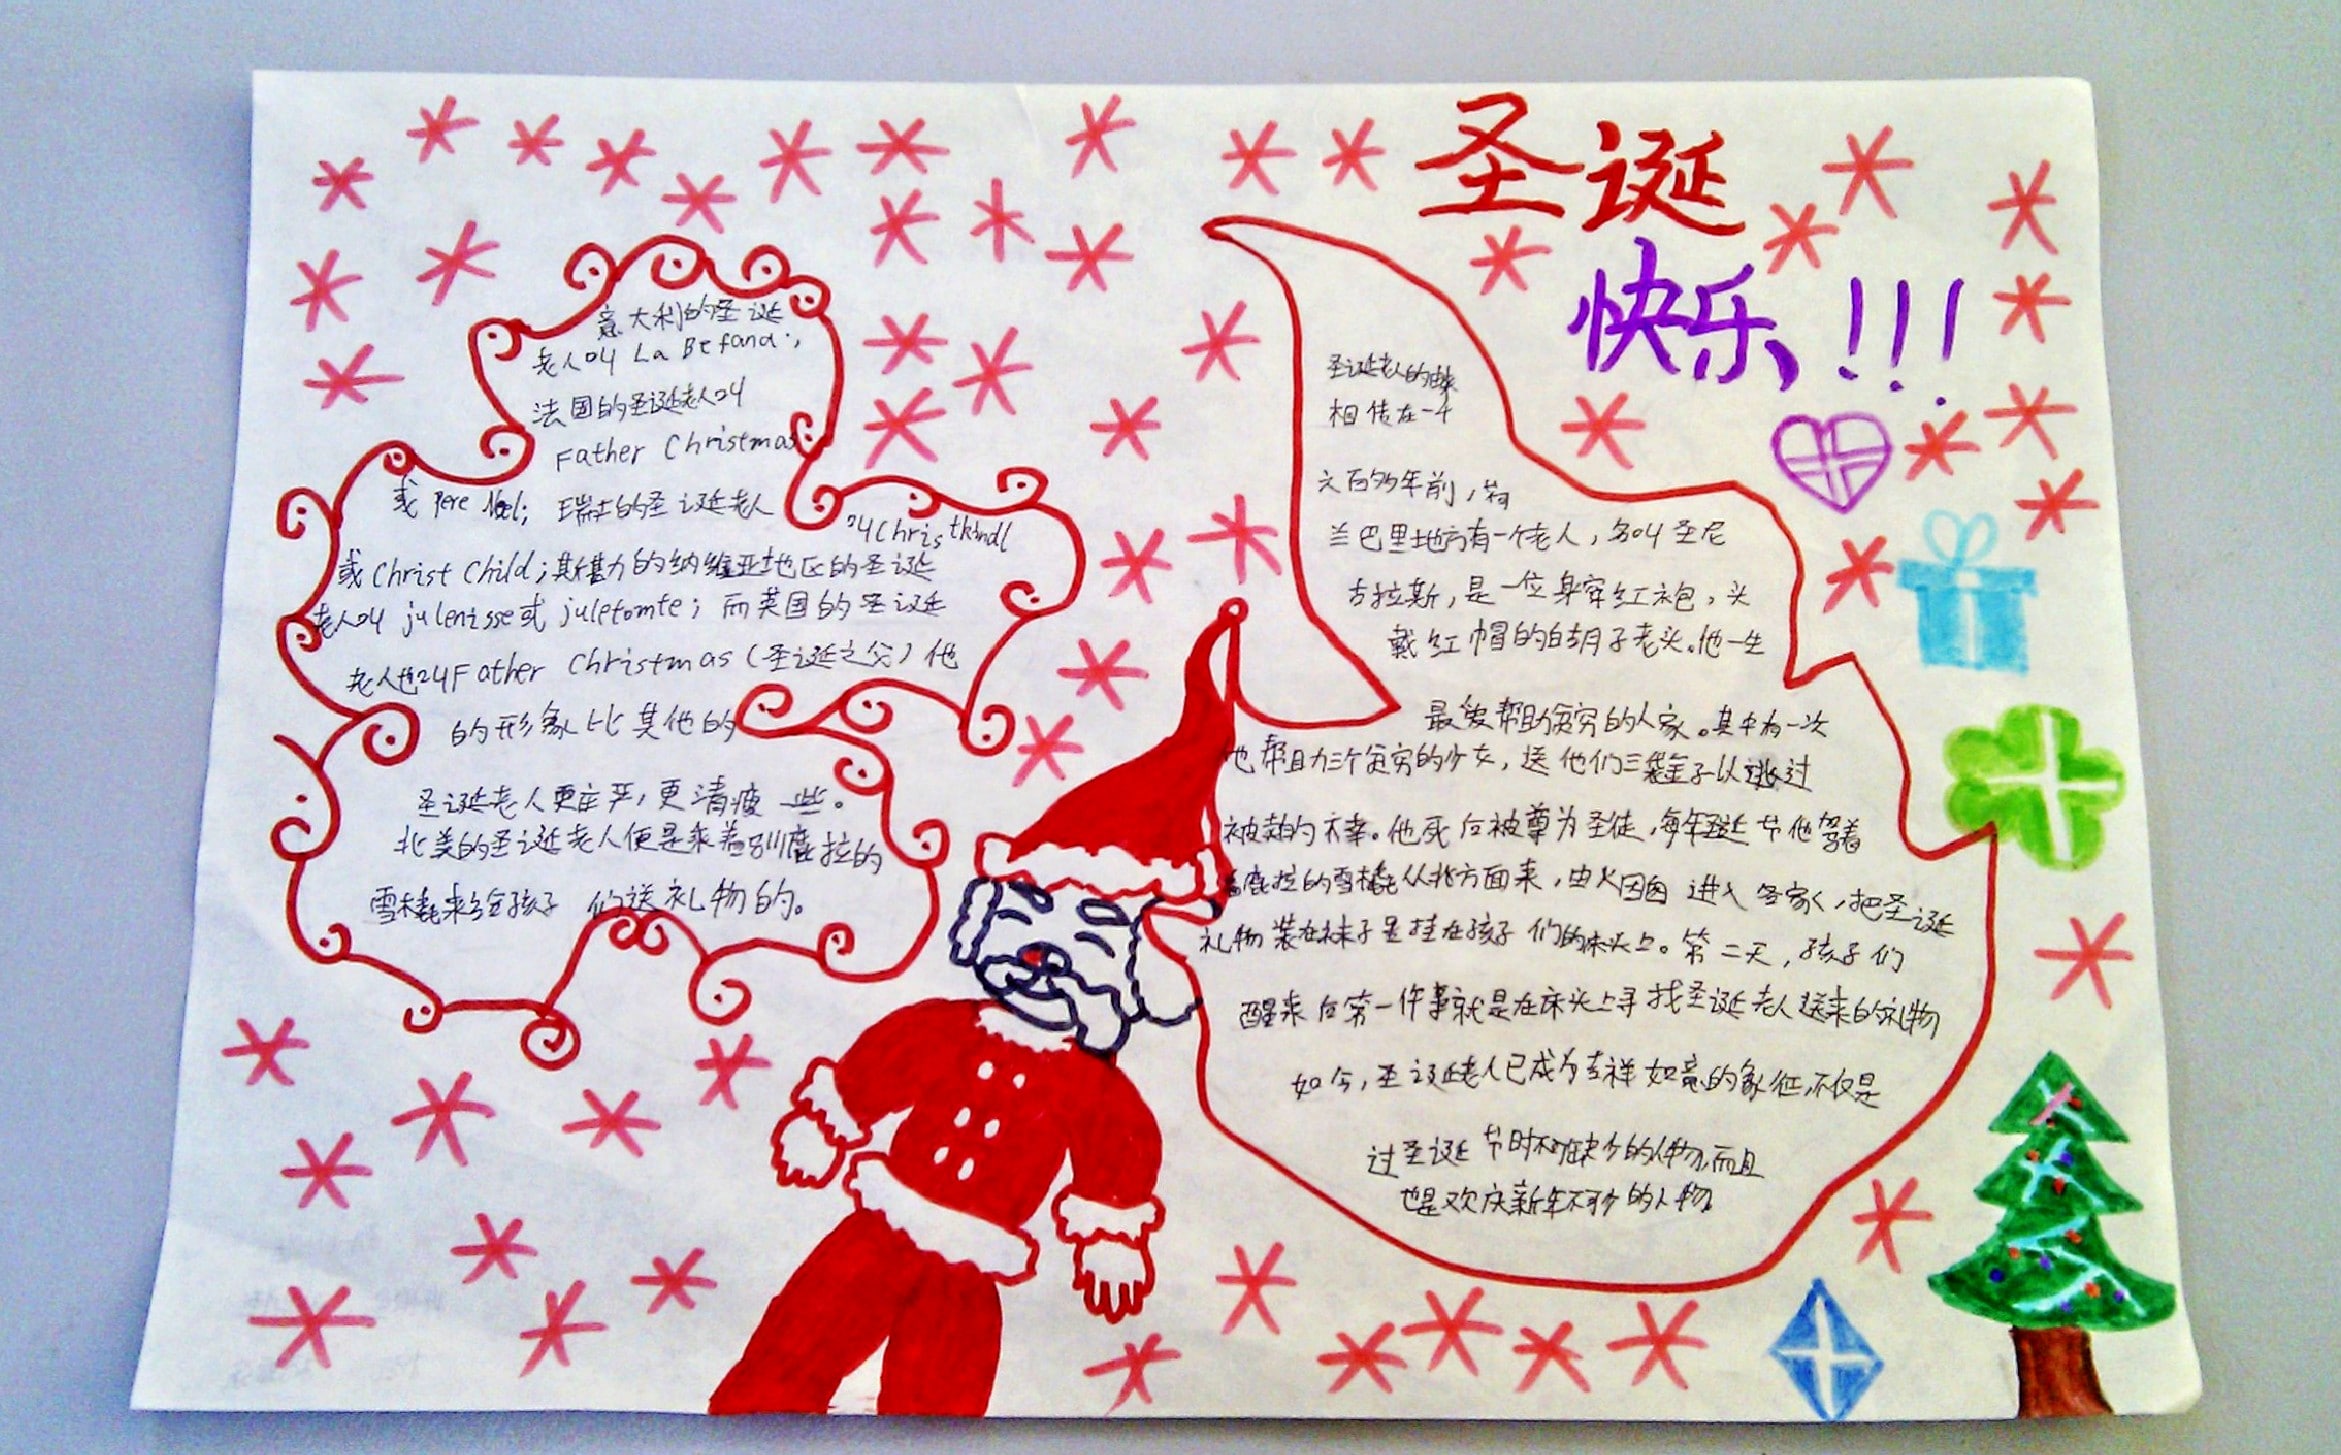 圣诞
快乐!!!
意大利的圣诞
老人叫 La Befana;
法国的圣诞老人叫
Father Christmas
或 Pere Noel; 瑞士的圣诞老人
叫Christkindl
或Christ Child;斯堪的纳维亚地区的圣诞
老人叫 julenisse或 juletomte; 而英国的圣诞
老人也叫Father Christmas (圣诞之父) 他
的形象比其他的
圣诞老人更庄严,更清瘦一些。
北美的圣诞老人便是乘着驯鹿拉的
雪橇来给孩子们送礼物的。
圣诞老人的由来
相传在一千
六百多年前,荷
兰巴里地方有一个老人,名叫圣尼
古拉斯,是一位身穿红袍,头
戴红帽的白胡子老头。他一生
最爱帮助贫穷的人家。其中有一次
他帮助三个贫穷的少女,送他们三袋金子以逃过
被卖的不幸。他死后被尊为圣徒,每年圣诞节他驾着
鹿拉的雪橇从北方面来,由火囱进入各家,把圣诞
礼物装在袜子里挂在孩子们的床头上。第二天,孩子们
醒来后第一件事就是在床头上寻找圣诞老人送来的礼物
如今,圣诞老人已成为吉祥如意的象征,不仅是
过圣诞节时不可缺少的人物,而且
也是欢庆新年不可少的人物